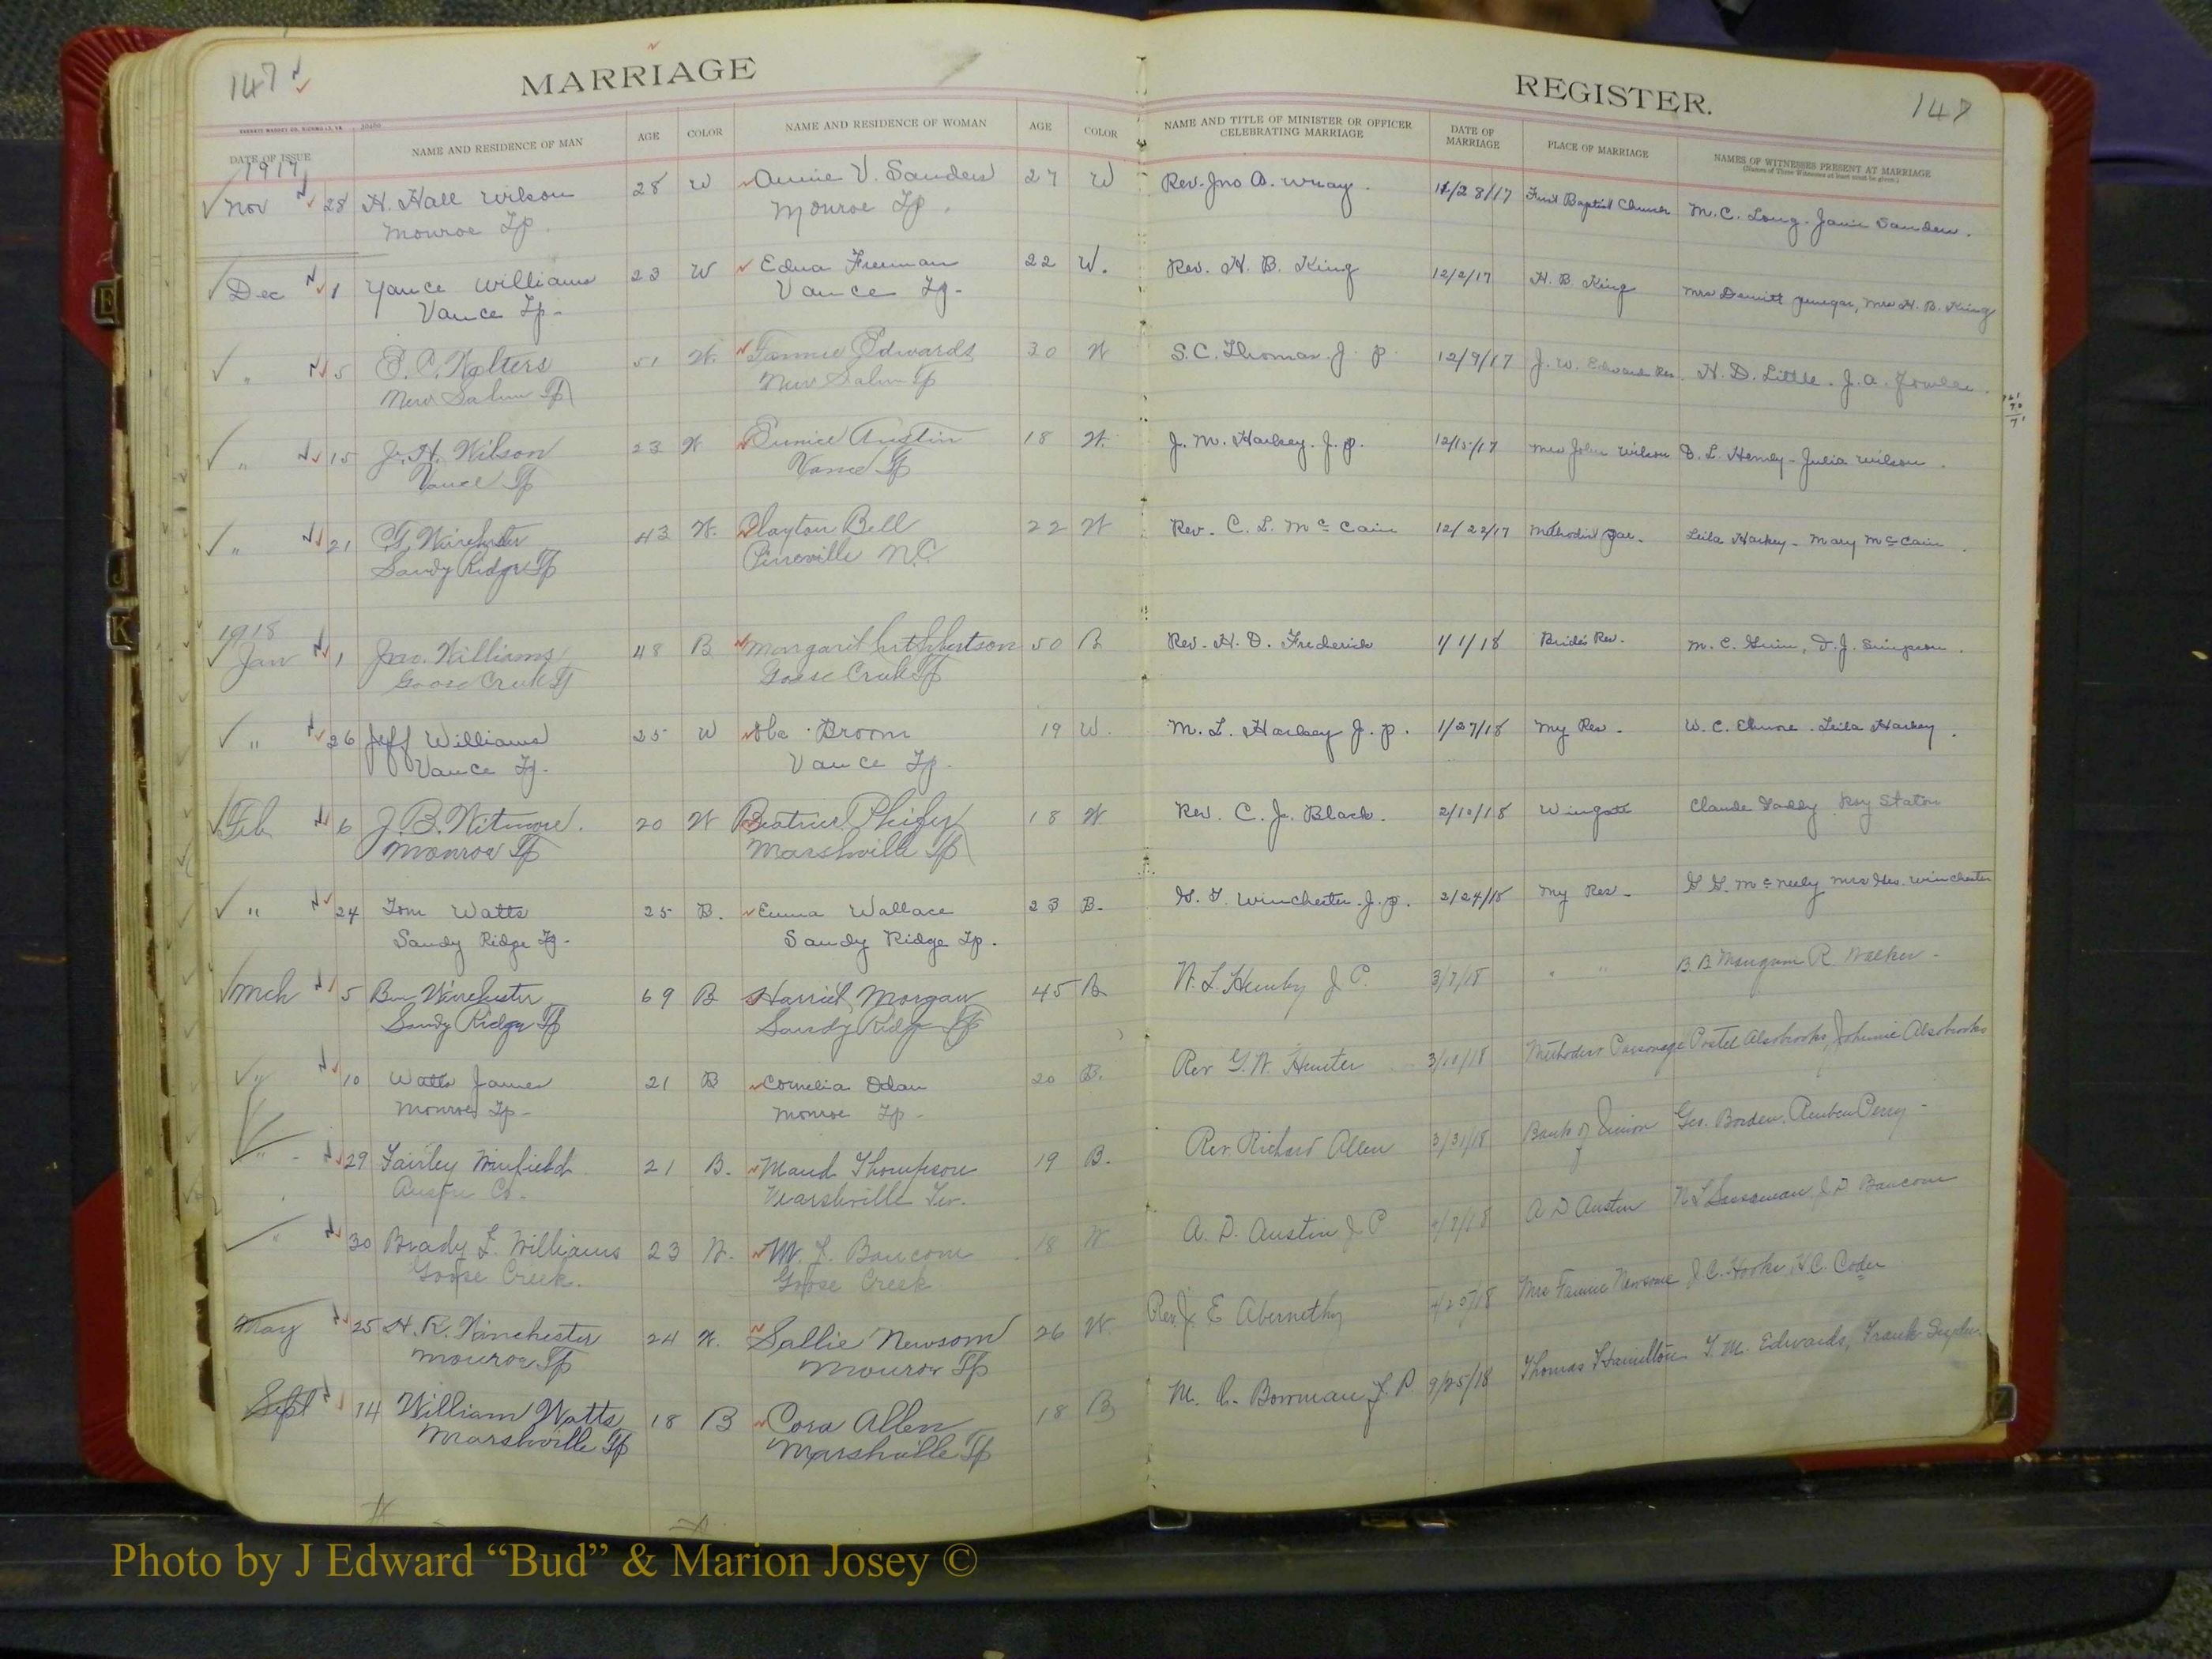 147
MARRIAGE
REGISTER.
147
DATE OF ISSUE
NAME AND RESIDENCE OF MAN
AGE
COLOR
NAME AND RESIDENCE OF WOMAN
AGE
COLOR
NAME AND TITLE OF MINISTER OR OFFICER
CELEBRATING MARRIAGE
DATE OF
MARRIAGE
PLACE OF MARRIAGE
NAMES OF WITNESSES PRESENT AT MARRIAGE
(Names of Three Witnesses at least must be given.)
1917
Nov 28 H. Hall Wilson 28 W Annie V. Sanders 27 W Rev. Jno A. Wray. 11/28/17 First Baptist Church M. C. Long. Janie Sanders.
Monroe Tp. Monroe Tp.
Dec 1 Yance Williams 23 W Edna Freeman 22 W. Rev. H. B. King 12/2/17 H. B. King Mrs H. B. King
Vance Tp- Vance Tp-
" 5 E. C. Wolters 51 W. Fannie Edwards 30 W S. C. Thomas. J. P. 12/9/17 J. W. Edwards Res. H. D. Little. J. A.
New Salem Tp New Salem Tp
" 15 J. H. Wilson 23 W Eunice Austin 18 W. J. M. Harkey. J. P. 12/15/17 Mrs John Wilson D. L. Henly - Julia Wilson.
Vance Tp Vance Tp
" 21 Winchester 43 W. Clayton Bell 22 W Rev. C. L. McCain 12/22/17 Methodist Par. Leila Harkey - Mary McCain.
Sandy Ridge Tp Pineville N.C.
1918
Jan 1 Jno. Williams 48 B Margaret Cuthbertson 50 B Rev. H. D. Frederick 1/1/18 Bride's Res. M. C. D. J. Simpson.
Goose Creek Tp Goose Creek Tp
" 26 Jeff Williams 25 W Broom 19 W. M. L. Harkey J. P. 1/27/18 My Res. W. C. Leila Harkey.
Vance Tp. Vance Tp.
Feb 6 J. B. Witmore. 20 W Beatrice Phifer 18 W Rev. C. J. Black. 2/10/18 Wingate Claude Gaddy Roy Staton
Monroe Tp Marshville Tp
" 24 Tom Watts 25 B. Emma Wallace 23 B. G. T. Winchester. J. P. 2/24/18 My Res - McNeely Mrs Geo. Winchester
Sandy Ridge Tp- Sandy Ridge Tp.
Mch 5 Ben Winchester 69 B Harriet Morgan 45 B N. L. J. P. 3/7/18 " " B. B. Mangum R. Walker -
Sandy Ridge Tp Sandy Ridge Tp
" 10 Watts James 21 B Cornelia Odam 20 B. Rev G. W. Hunter 3/10/18 Methodist Parsonage Postel Alsobrooks, Johnnie Alsobrooks
Monroe Tp- Monroe Tp-
" 29 Fairley Winfield 21 B. Maud Thompson 19 B. Rev Richard Allen 3/31/18 Bank of Union Geo. Borden, Reuben Perry -
Anson Co. Marshville
" 30 Brady L. Williams 23 W. M. L. Baucom 18 W A. D. Austin J P 4/7/18 A D Austin J. D. Baucom
Goose Creek. Goose Creek
May 25 H. R. Winchester 24 W. Sallie Newsom 26 W. Rev. J. E Abernethy Mrs Fannie Newsome J. C. Hooks, H. C. Coder
Monroe Tp Monroe Tp
Sept 14 William Watts 18 B Cora Allen 18 B M. C. Bowman J. P 9/25/18 Thomas Hamilton T. M. Edwards, Frank
Marshville Tp Marshville Tp
Photo by J Edward “Bud” & Marion Josey ©